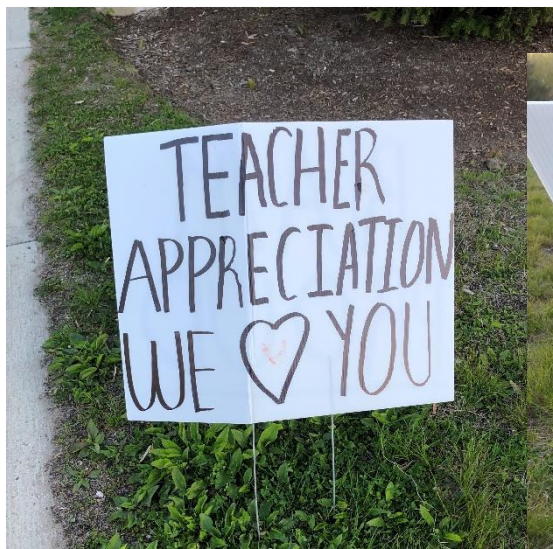 TEACHER
APPRECIATION
WE ♡ YOU